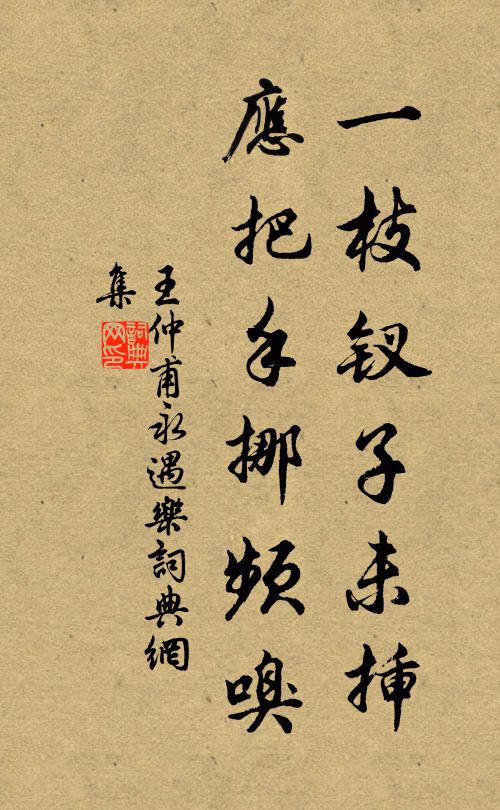 一枝釵子未插
應把手挪頻嗅
王仲甫永遇樂詞典網
集
詞典網印